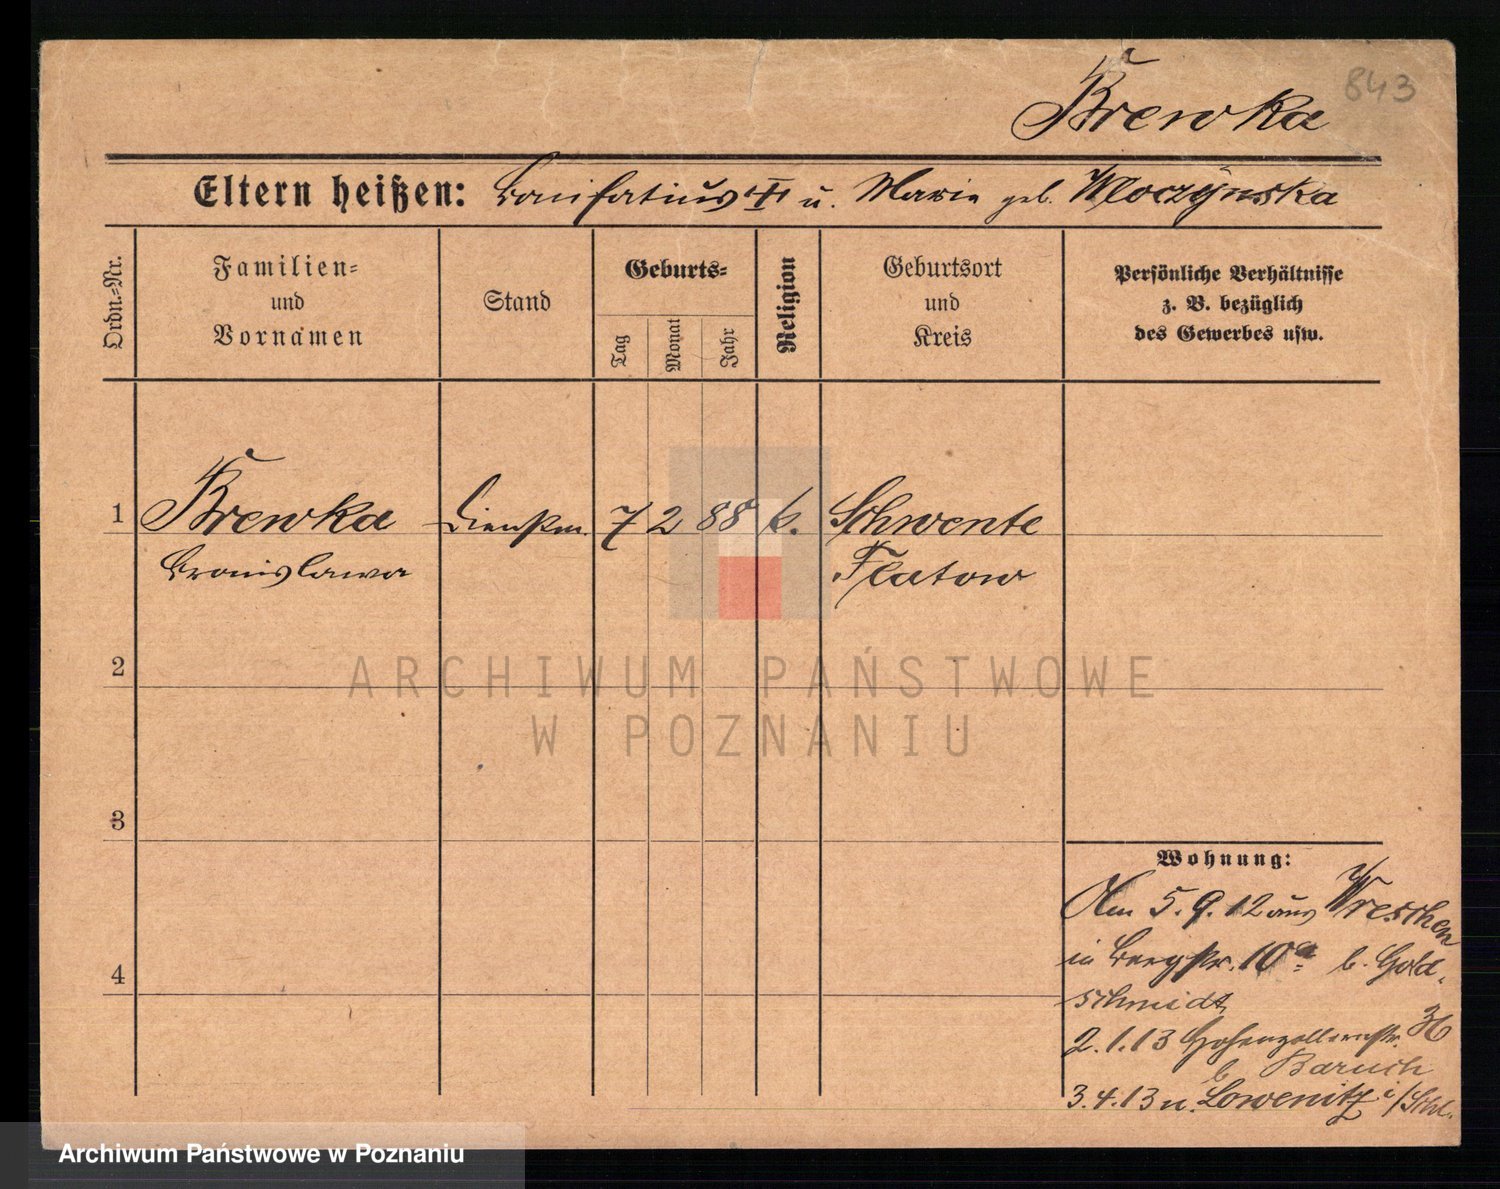 843
Brewka
Eltern heißen: Bonifatius u. Marie geb. Wloczynska
Ordn.-Nr.
Familien-
und
Vornamen
Stand
Geburts-
Tag
Monat
Jahr
Religion
Geburtsort
und
Kreis
Persönliche Verhältnisse
z. B. bezüglich
des Gewerbes usw.
1 Brewka Dienstm. 7 2 88 k. Schwente
Bronislawa Flatow
2
3
4
Wohnung:
Am 5.9.12 aus Wreschen
in Bergstr. 10a b. Gold-
schmidt
2.1.13 Hohenzollernstr. 36
b Baruch
3.4.13 n. Lowenitz i/Schl.
ARCHIWUM PAŃSTWOWE
W POZNANIU
Archiwum Państwowe w Poznaniu